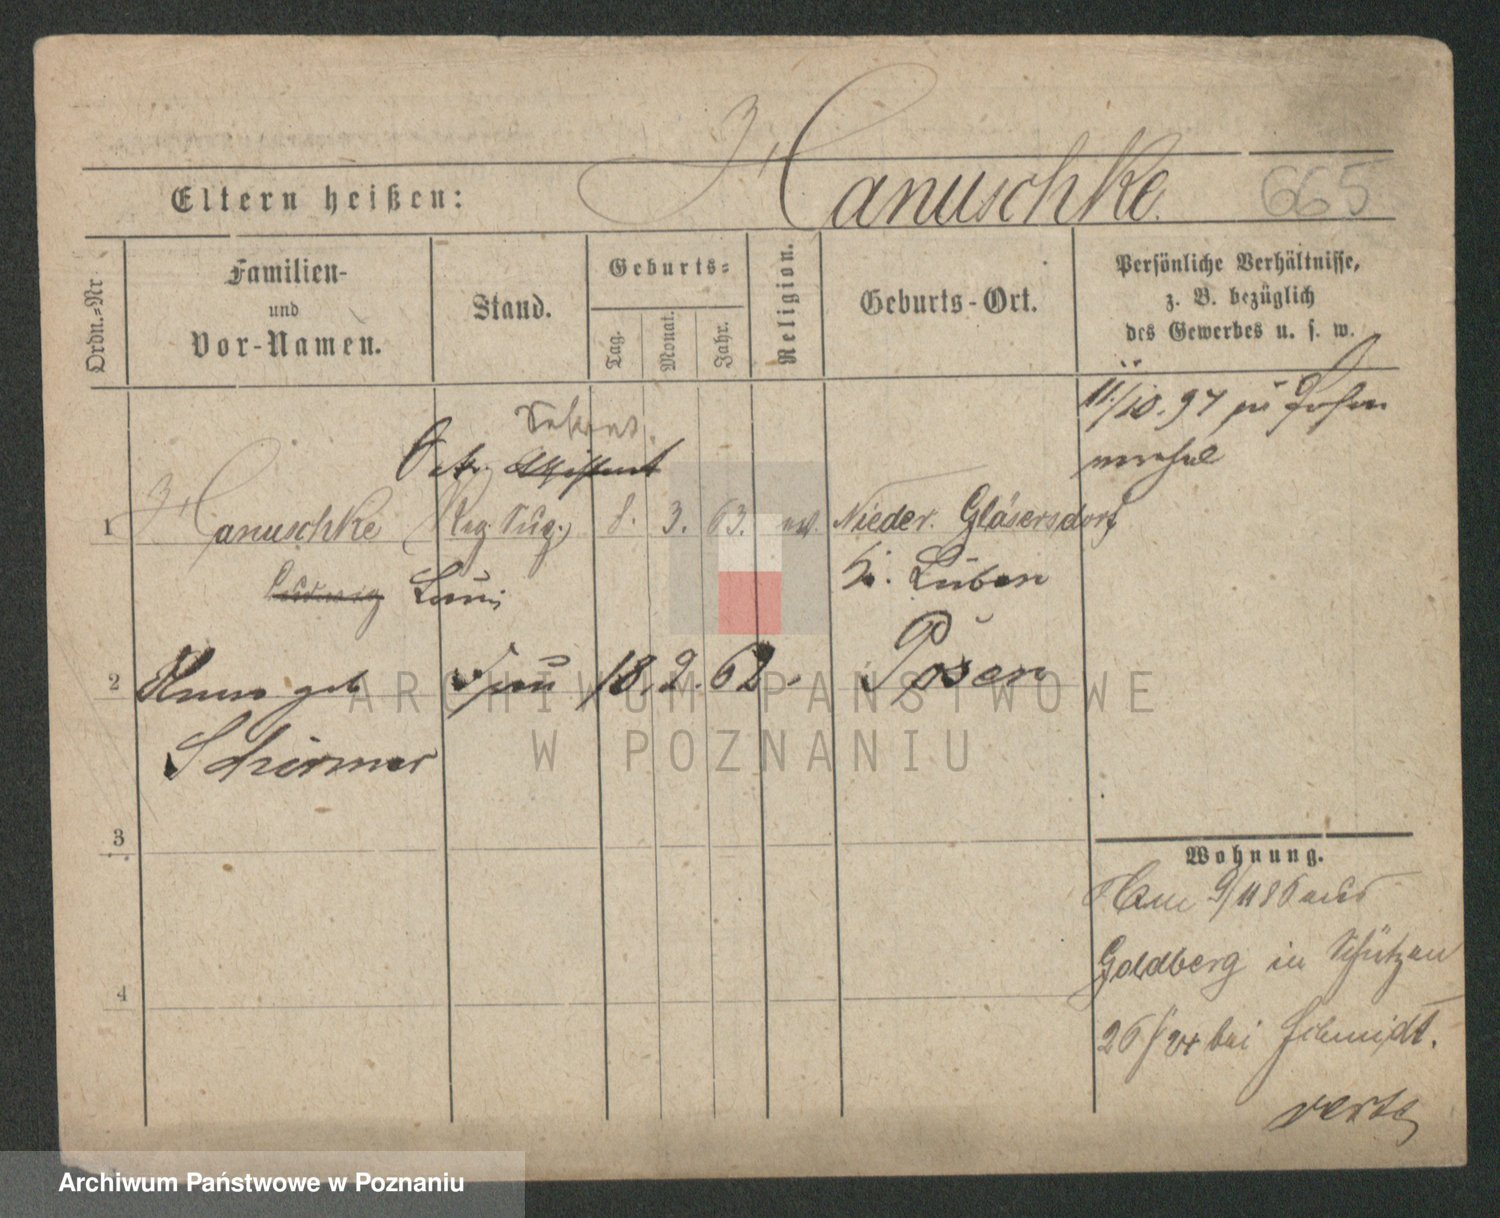 Hanuschke 665
Eltern heißen:
Ordn.-Nr
Familien-
und
Vor-Namen.
Stand.
Geburts-
Tag.
Monat.
Jahr.
Religion.
Geburts-Ort.
Persönliche Verhältnisse,
z. B. bezüglich
des Gewerbes u. s. w.
11/10. 97 zu
1 Hanuschke 8. 3. 63. ev. Nieder. Gläsersdorf
Kr. Lüben
2 geb Frau 18. 2. 62 Posen
Schirmer
3
4
Wohnung.
Goldberg in Schützen
26 bei Schmidt.
verte
ARCHIWUM PAŃSTWOWE
W POZNANIU
Archiwum Państwowe w Poznaniu